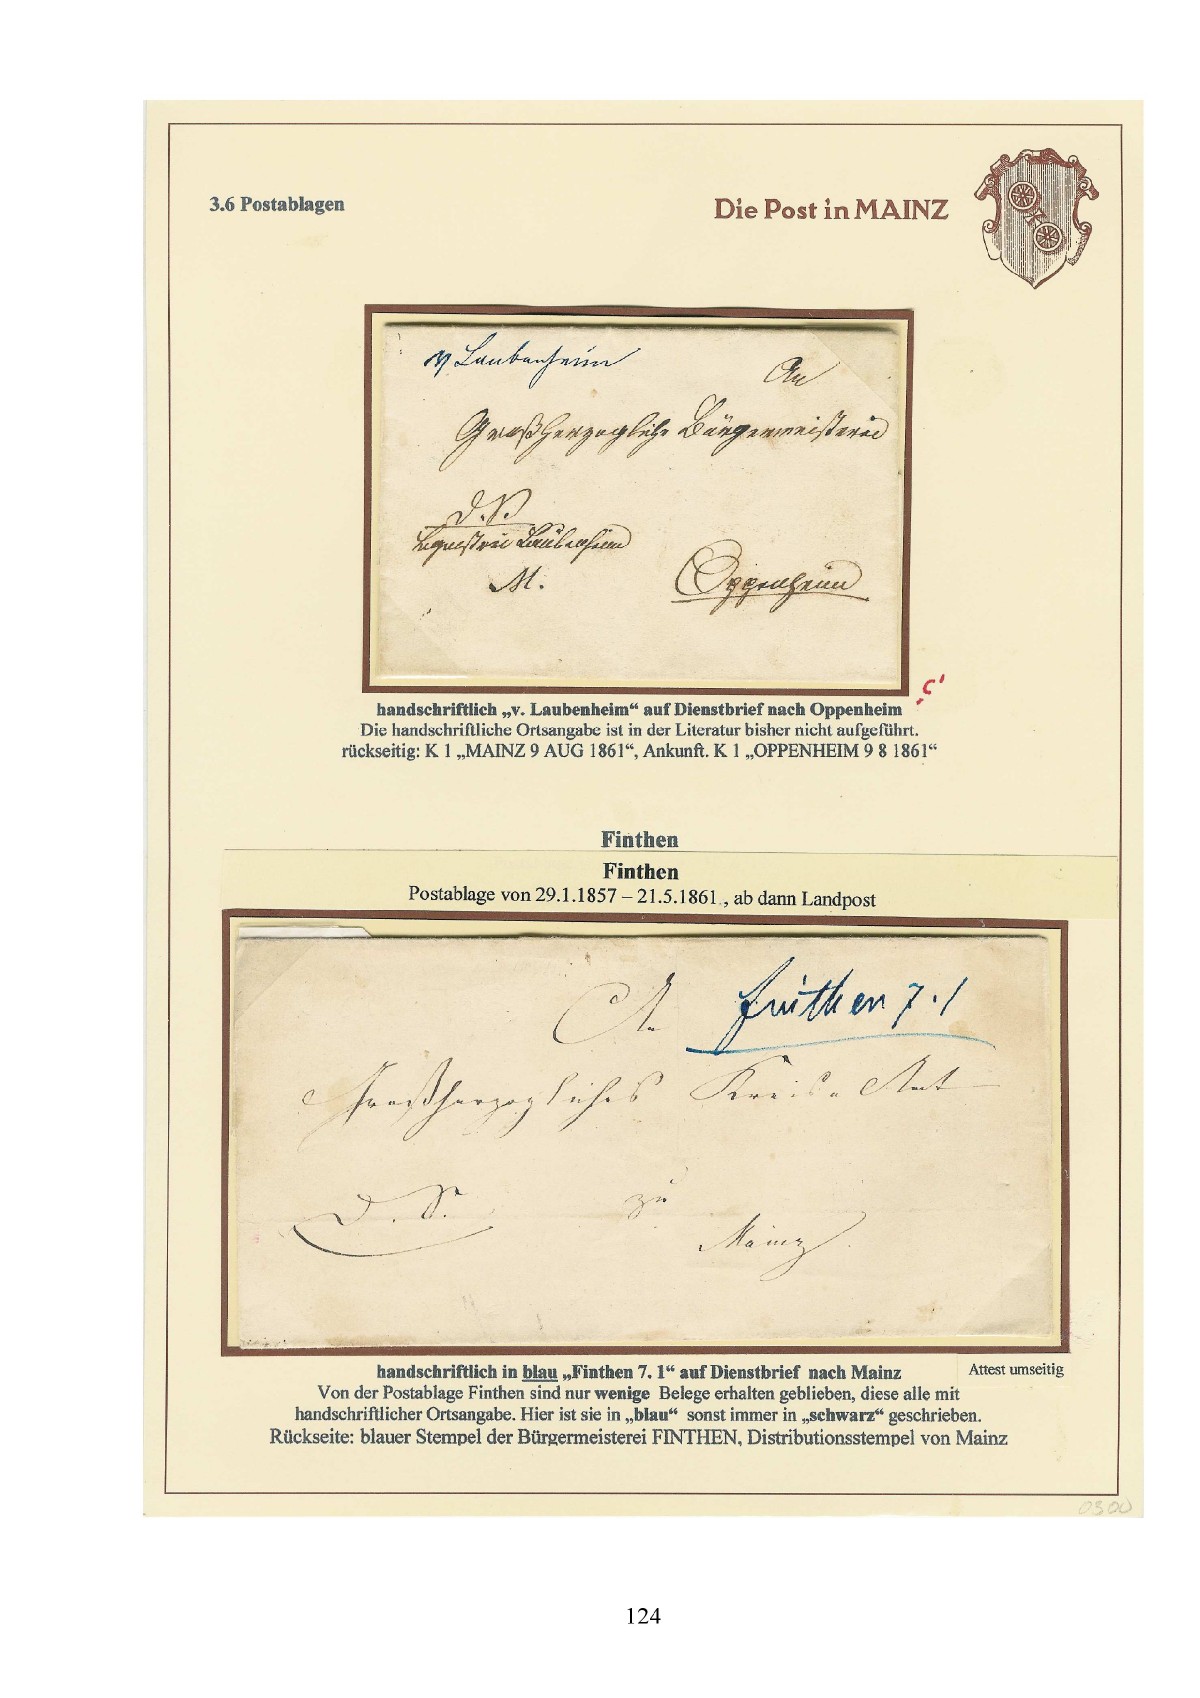 3.6 Postablagen
Die Post in MAINZ
v Laubenheim
An
Großherzogliche Bürgermeisterei
D. S.
Laubenheim
M.
Oppenheim
handschriftlich „v. Laubenheim“ auf Dienstbrief nach Oppenheim
Die handschriftliche Ortsangabe ist in der Literatur bisher nicht aufgeführt.
rückseitig: K 1 „MAINZ 9 AUG 1861“, Ankunft. K 1 „OPPENHEIM 9 8 1861“
Finthen
Finthen
Postablage von 29.1.1857 – 21.5.1861 , ab dann Landpost
An
Finthen 7. 1
Großherzogliches Kreis Amt
D. S.
zu
Mainz
handschriftlich in blau „Finthen 7. 1“ auf Dienstbrief nach Mainz
Attest umseitig
Von der Postablage Finthen sind nur wenige Belege erhalten geblieben, diese alle mit
handschriftlicher Ortsangabe. Hier ist sie in „blau“ sonst immer in „schwarz“ geschrieben.
Rückseite: blauer Stempel der Bürgermeisterei FINTHEN, Distributionsstempel von Mainz
124